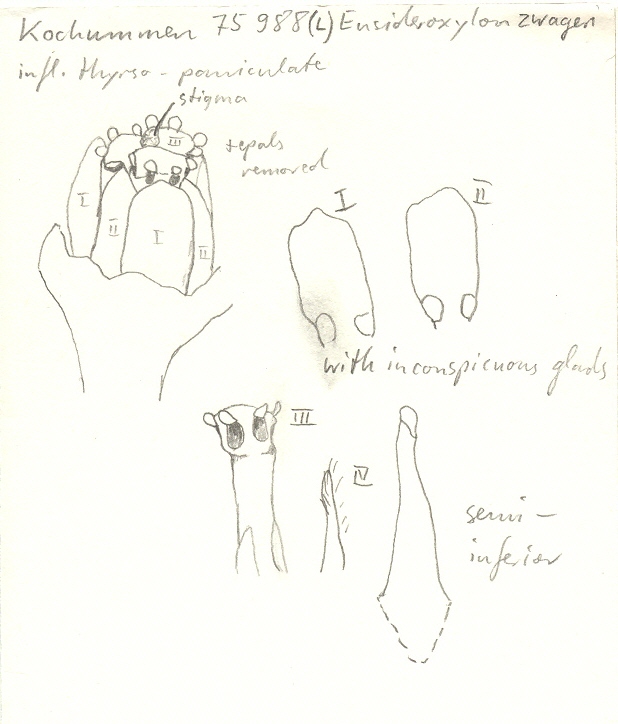 Kochummen 75 988(L) Eusideroxylon zwageri
infl. thyrso-paniculate
stigma
III
tepals
removed
I
II
I
II
I
II
with inconspicuous glads
III
IV
semi-
inferior